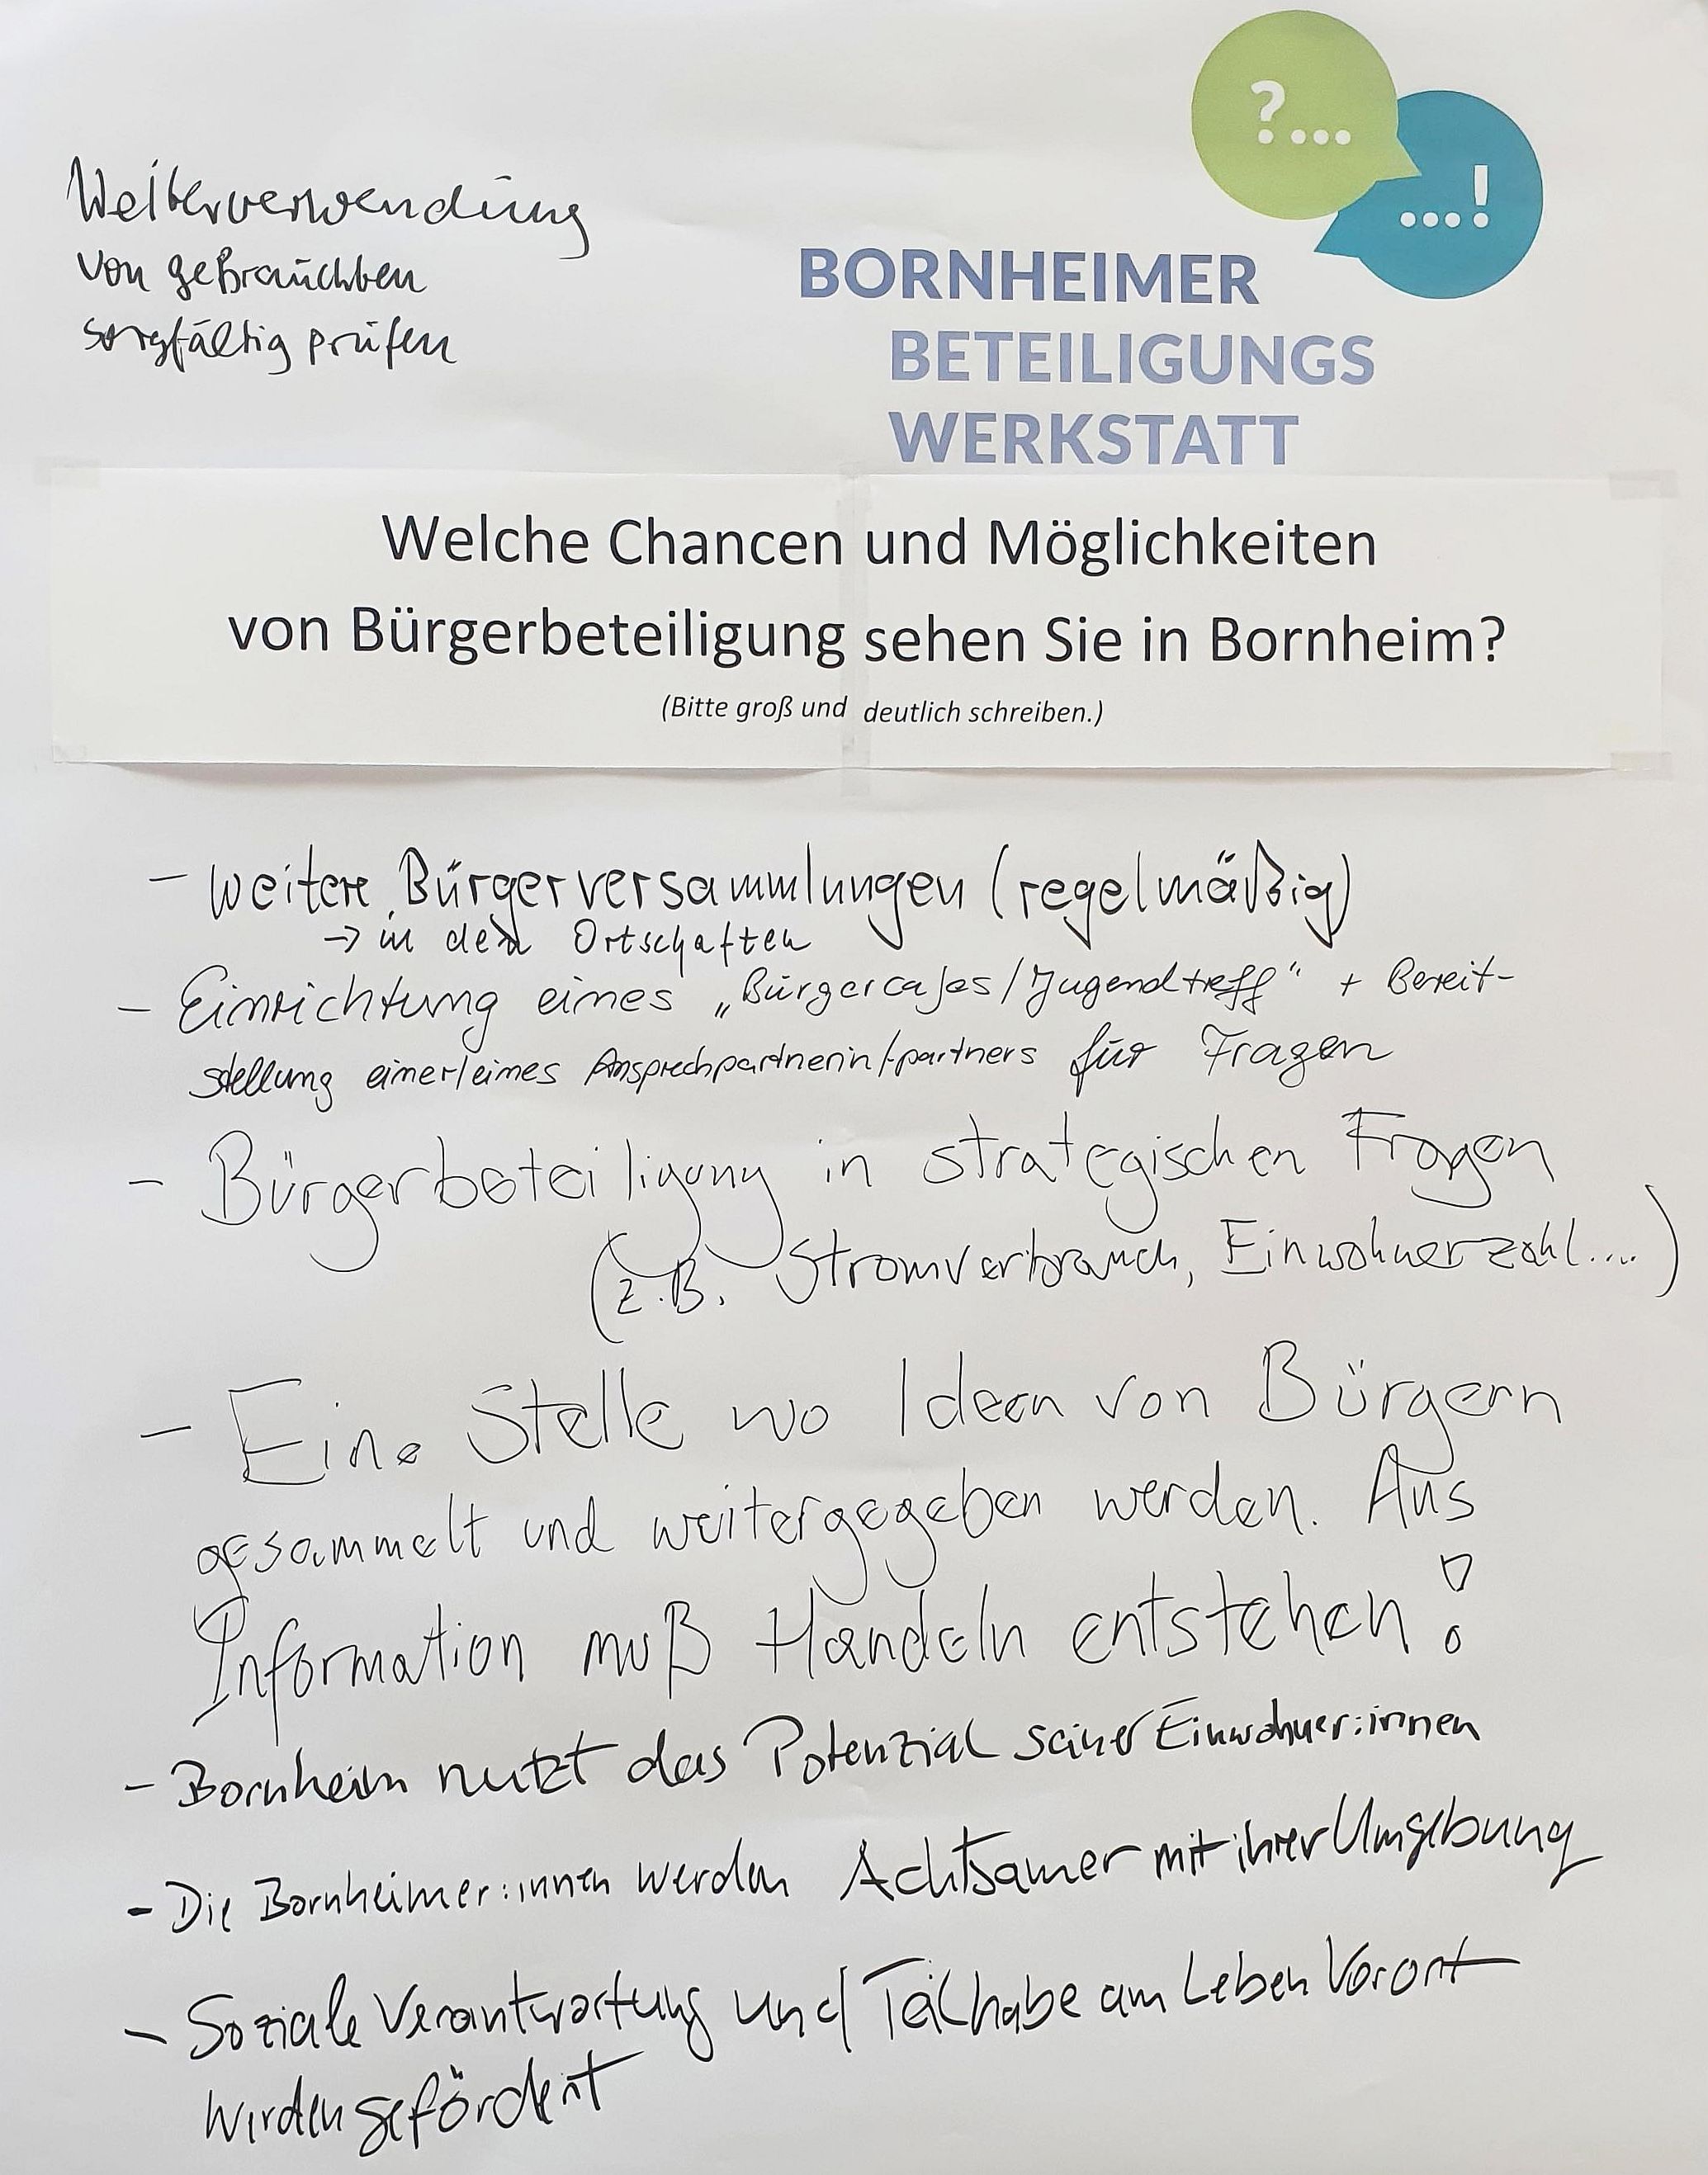 ?...
...!
Weiterverwendung
von gebrauchten
sorgfältig prüfen
BORNHEIMER
BETEILIGUNGS
WERKSTATT
Welche Chancen und Möglichkeiten
von Bürgerbeteiligung sehen Sie in Bornheim?
(Bitte groß und deutlich schreiben.)
- weitere Bürgerversammlungen (regelmäßig)
→ in den Ortschaften
- Einrichtung eines „Bürgercafes/Jugendtreff" + Bereit-
stellung einer/eines Ansprechpartnerin/-partners für Fragen
- Bürgerbeteiligung in strategischen Fragen
(z.B. Stromverbrauch, Einwohnerzahl....)
- Eine Stelle wo Ideen von Bürgern
gesammelt und weitergegeben werden. Aus
Information muß Handeln entstehen!
- Bornheim nutzt das Potenzial seiner Einwohner:innen
- Die Bornheimer:innen werden Achtsamer mit ihrer Umgebung
- Soziale Verantwortung und Teilhabe am Leben Vorort
werden gefördert